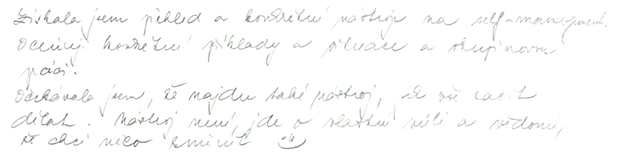 Získala jsem přehled a konkrétní nástroje na self-management.
Oceňuji konkrétní příklady a situace a skupinovou
práci.
Očekávala jsem, že najdu také nástroj, jak vše začít
dělat. Nástroj není, jde o vlastní vůli a vědomí,
že chci něco změnit :)